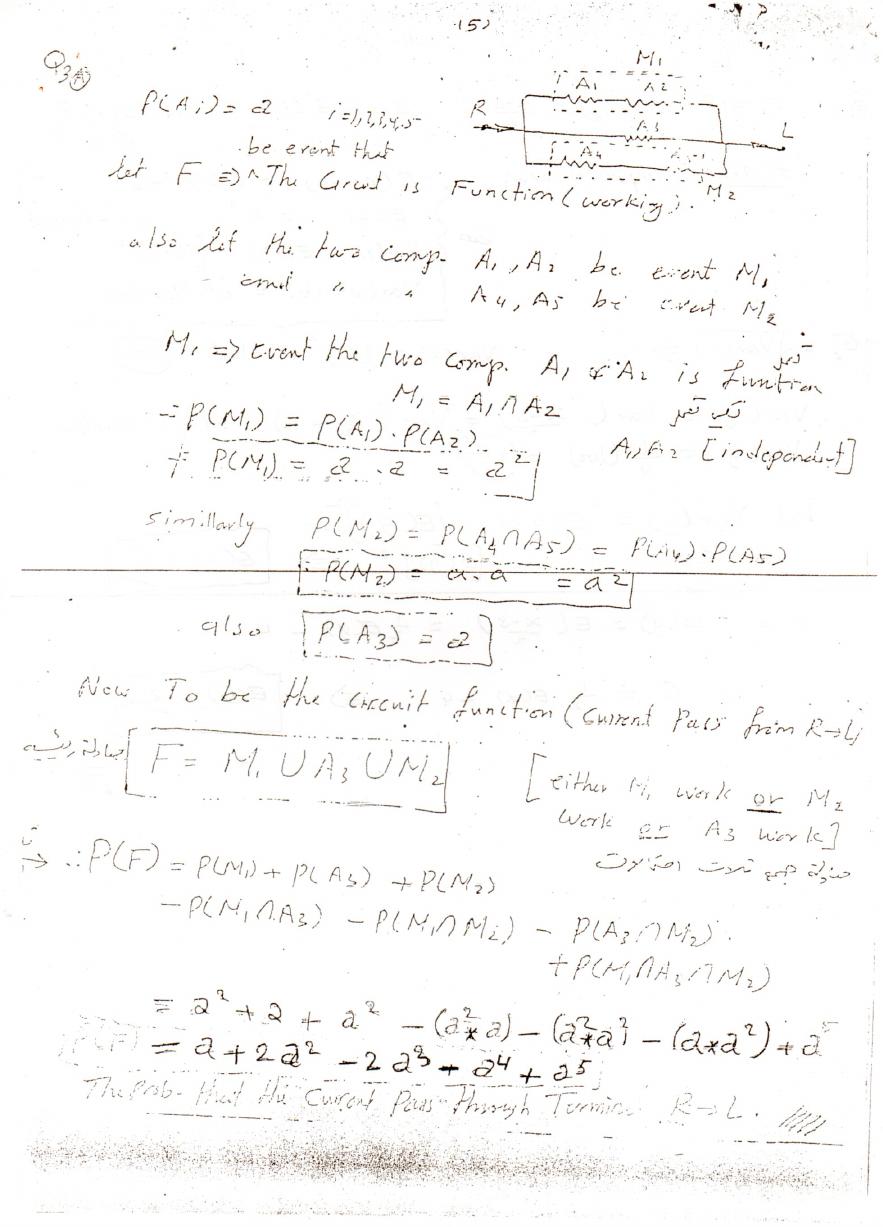 (5)
Q3(A)
M1
A1 A2
R A3 L
A4
M2
P(Ai) = a i=1,2,3,4,5
be event that
let F => ^ The Circut is Function (working).
also let the two comp. A1, A2 be event M1
and " " A4, A5 be event M2
M1 => Event the two comp. A1 & A2 is function
M1 = A1 ∩ A2
∴ P(M1) = P(A1) . P(A2)
A1, A2 [independent]
P(M1) = a . a = a²
simillarly P(M2) = P(A4 ∩ A5) = P(A4) . P(A5)
∴ P(M2) = a . a = a²
also P(A3) = a
Now To be the circuit function (Current Pass from R→L)
F = M1 ∪ A3 ∪ M2
[either M1 work or M2
work or A3 work]
∴ P(F) = P(M1) + P(A3) + P(M2)
- P(M1 ∩ A3) - P(M1 ∩ M2) - P(A3 ∩ M2)
+ P(M1 ∩ A3 ∩ M2)
= a² + a + a² - (a² * a) - (a² * a²) - (a * a²) + a⁵
P(F) = a + 2a² - 2a³ - a⁴ + a⁵
The Prob. that the Current Pass through Termin R→L.